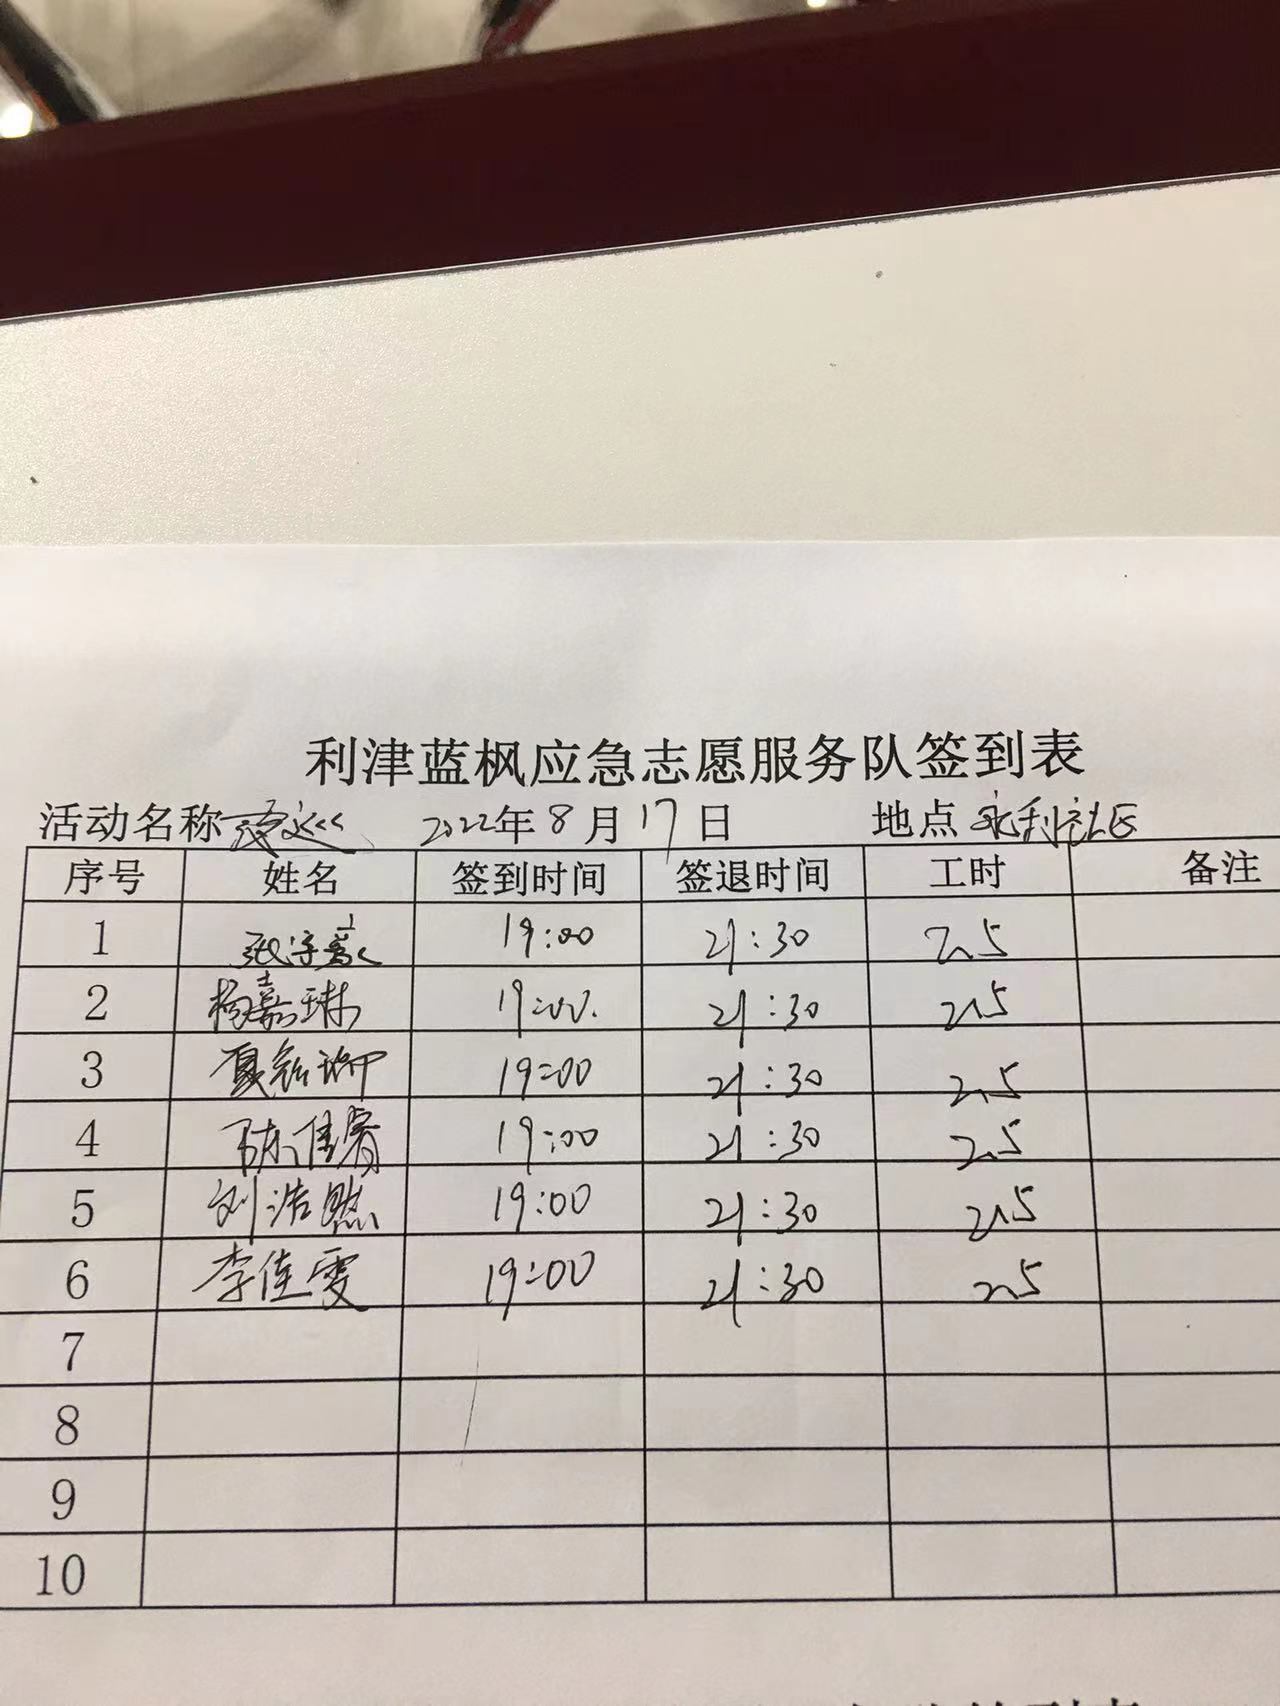 利津蓝枫应急志愿服务队签到表
活动名称夜巡 2022年8月17日 地点永利社区
序号 姓名 签到时间 签退时间 工时 备注
1 张宇豪 19:00 21:30 2.5
2 杨嘉琳 19:00 21:30 2.5
3 夏 19:00 21:30 2.5
4 陈佳睿 19:00 21:30 2.5
5 刘浩然 19:00 21:30 2.5
6 李佳雯 19:00 21:30 2.5
7
8
9
10